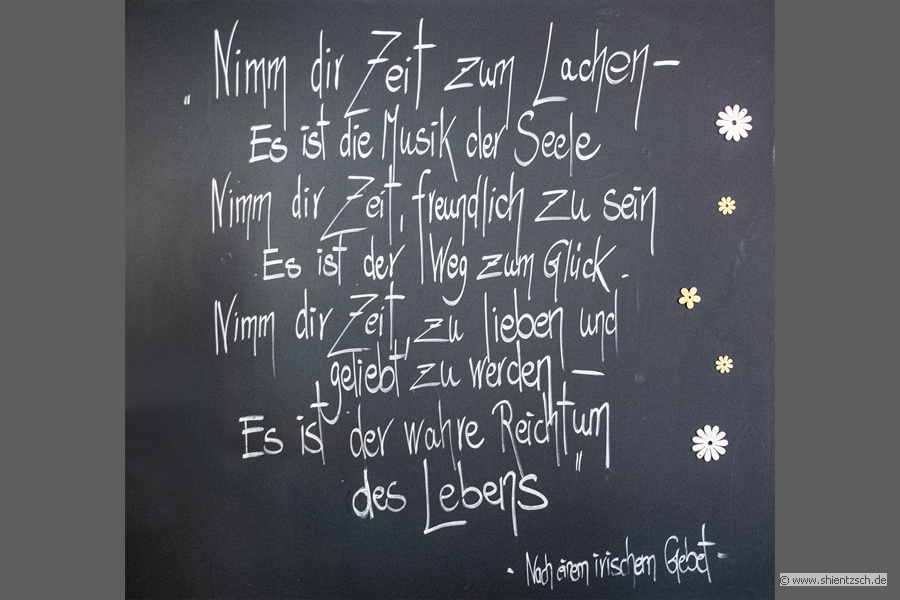 „Nimm dir Zeit zum Lachen –
Es ist die Musik der Seele
Nimm dir Zeit, freundlich zu sein
Es ist der Weg zum Glück.
Nimm dir Zeit, zu lieben und
geliebt zu werden –
Es ist der wahre Reichtum
des Lebens"
- Nach einem irischem Gebet -
© www.shientzsch.de